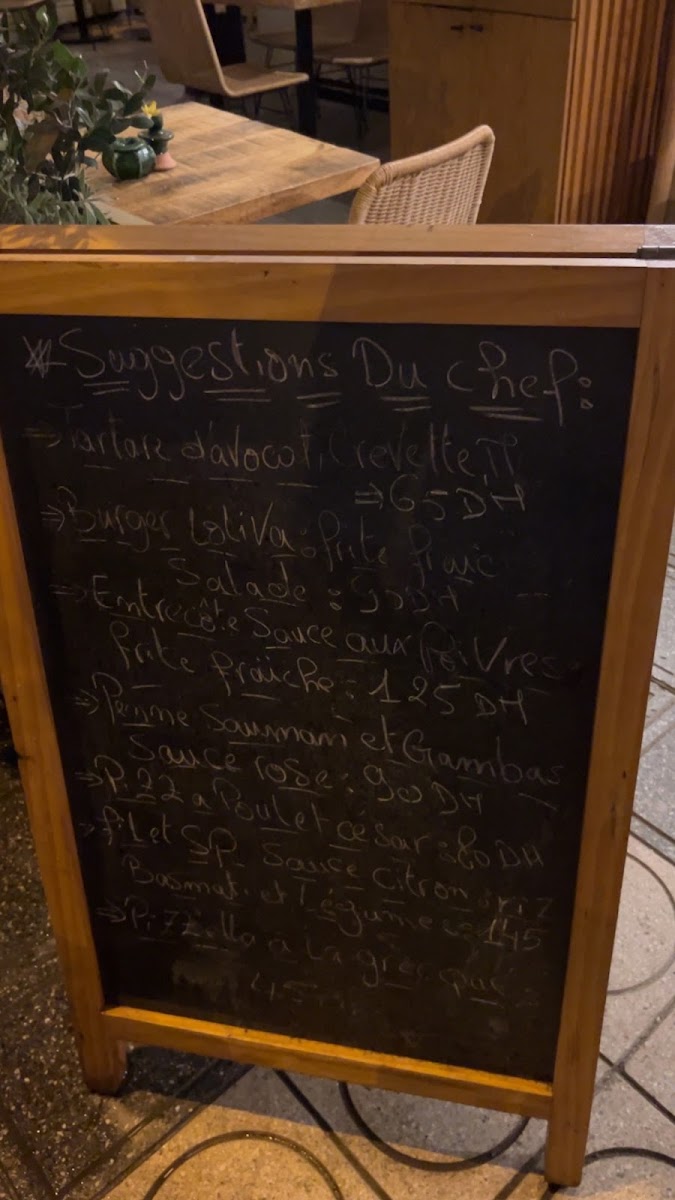 Suggestions Du chef:
⇒ Tartare d'avocot, Crevette
⇒ 65 DH
⇒ Burger Lotiva: frite fraic
Salade: 90 DH
⇒ Entrecôte Sauce aux Poivres
frite fraiche: 125 DH
⇒ Penne Saumon et Gambas
Sauce rose: 90 DH
⇒ Pizza Poulet cesar: 80 DH
⇒ filet SP Sauce citron riz
Basmati et Légumes: 145
⇒ Pizzetta a la grecque
45